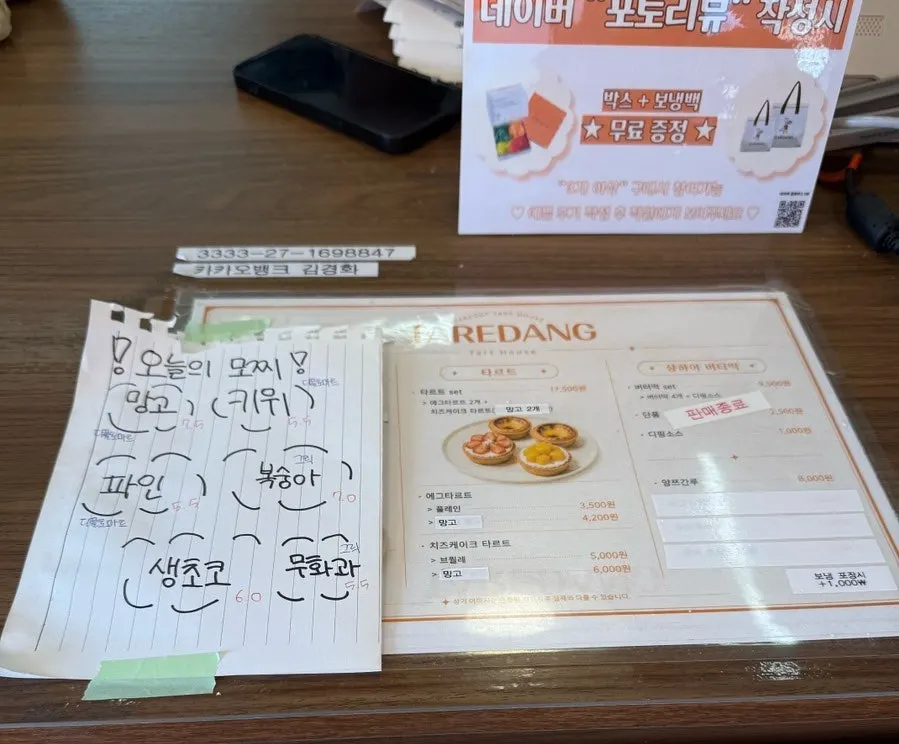 네이버 "포토리뷰" 작성시
박스 + 보냉백
★ 무료 증정 ★
"3개 이상" 구매시 참여가능
3333-27-1698847
카카오뱅크 김경화
!오늘의 모찌!
망고 7.5
키위 5.5
파인 5.5
복숭아 7.0
그릭
생초코 6.0
무화과 5.5
그릭
TAREDANG
Tart House
타르트
타르트 set 17,500원
> 에그타르트 2개 +
치즈케이크 타르트( 망고 2개
· 에그타르트
> 플레인 3,500원
> 망고 4,200원
· 치즈케이크 타르트
> 브륄레 5,000원
> 망고 6,000원
상하이 버터떡
· 버터떡 set 9,500원
> 버터떡 4개 + 디핑소스
· 단품 2,500원
판매종료
· 디핑소스 1,000원
· 양쯔간루 8,000원
보냉 포장시
+1,000₩